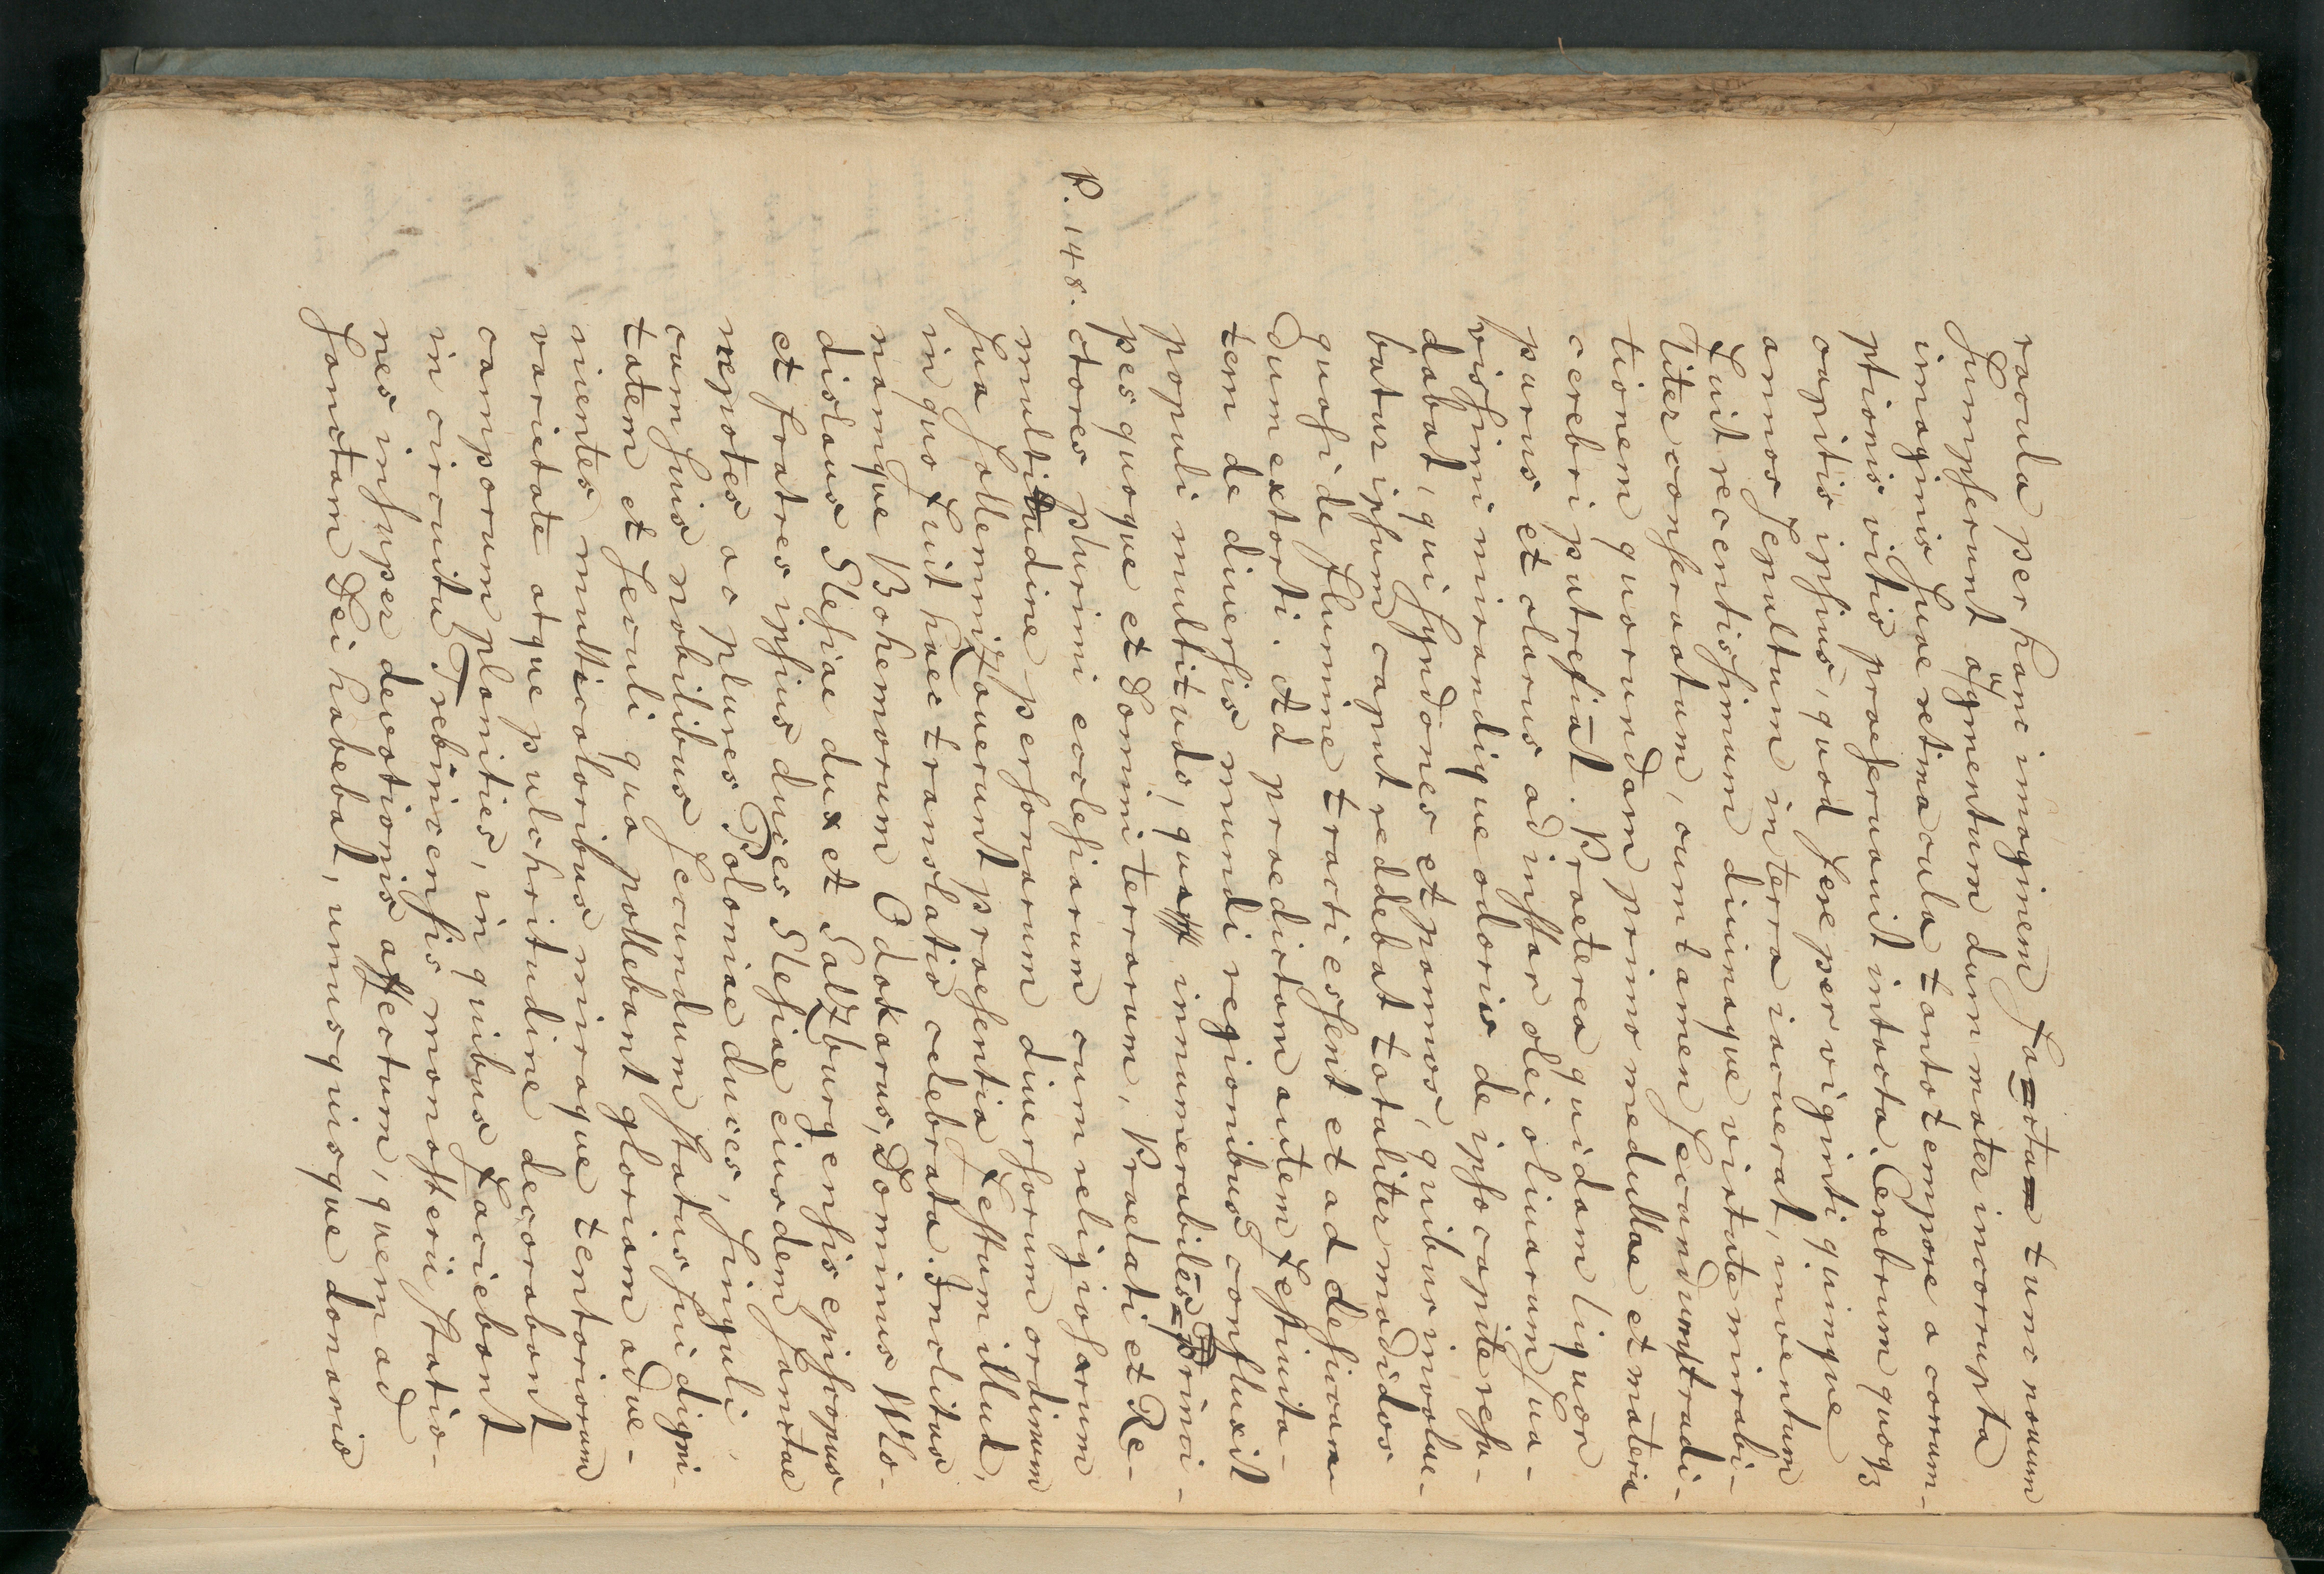 racula per hanc imaginem facta tunc novum
sumpserunt augmentum dum mater incorrupta
imaginis suae retinacula tanto tempore a corrum-
ptionis vitio praeseruauit intacta. Cerebrum quoqz
capitis ipsius, quod fere per viginti quinque
annos sepultum in terra iacuerat, inventum
fuit recentissimum diuinaque virtute mirabi-
liter conseruatum, cum tamen secundum tradi-
tionem quorundam primo medullae et materia
cerebri putrefiat. Praeterea quidam liquor
purus et clarus ad instar olei oliuarum sua-
vissimi mirandique odoris de ipso capite resu-
dabat, qui syndones et pannos, quibus inuolue-
batur ipsum caput reddebat totaliter madidos
quasi de flumine tracti essent et ad desican-
dum extorti. Ad praedictam autem festiuita-
tem de diuersis mundi regionibus confluxit
populi multitudo, quasi innumerabiles Princi-
pes quoque et Domini terrarum, Praelati et Re-
P. 148. ctores plurimi ecclesiarum cum religiosarum
multitudine personarum diuersorum ordinum
sua sollemnizauerunt praesentia festum illud,
in quo fuit haec translatio celebrata. Inclitus
namque Bohemorum Odokarus, Dominus Wlo-
dislaus Slesiae dux et Salzburgensis episcopus
et fratres ipsius duces Slesiae eiusdem sanctae
nepotes ac plures Poloniae duces, singuli,
cum suis nobilibus secundum status sui digni-
tatem et seculi qua pollebant gloriam adue-
nientes multicoloribus miraque tentoriorum
varietate atque pulchritudine decorabant
camporum planities, in quibus faciebant
in circuitu Trebnicensis monasterii statio-
nes insuper devotionis affectum, quem ad
sanctam Dei habebat, unusquisque donariis